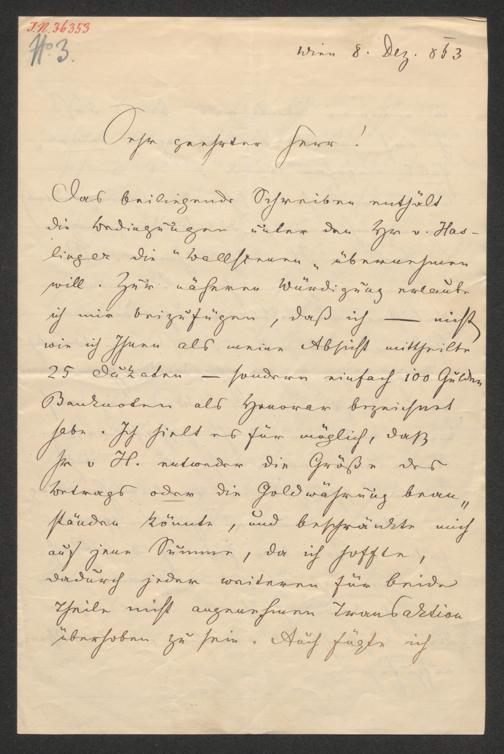 I.N. 36353
No 3.
Wien 8. Dez. 853
Sehr geehrter Herr!
Das beiliegende Schreiben enthält
die Bedingungen unter den Hr v. Has-
linger die "Wallsteuer" übernehmen
will. Zur näheren Würdigung erlaube
ich mir beizufügen, daß ich — nicht
wie ich Ihnen als meine Absicht mittheilte
25 Dukaten — sondern einfach 100 Gulden
Banknoten als Honorar bezeichnet
habe. Ich hielt es für möglich, daß
Hr v H. entweder die Größe des
Betrags oder die Goldwährung bean„
ständen könnte, und beschränkte mich
auf jene Summe, da ich hoffte,
dadurch jeder weiteren für beide
Theile nicht angenehmen Transaktion
überhoben zu sein. Auch fügte ich